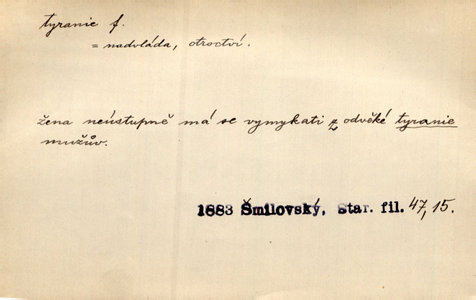 tyranie f.
= nadvláda, otroctví.
žena neústupně má se vymykati z odvěké tyranie
mužův.
1883 Šmilovský, Star. fil. 47, 15.